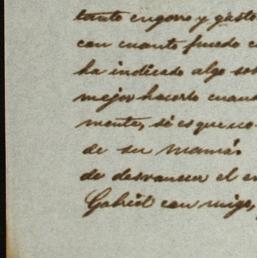 tanto engorro y gasto
con cuanto puedo
ha indicado algo
mejor hacerlo
mente, si es que no
de su mamá.
de desvanecer el
Gabriel con migo,